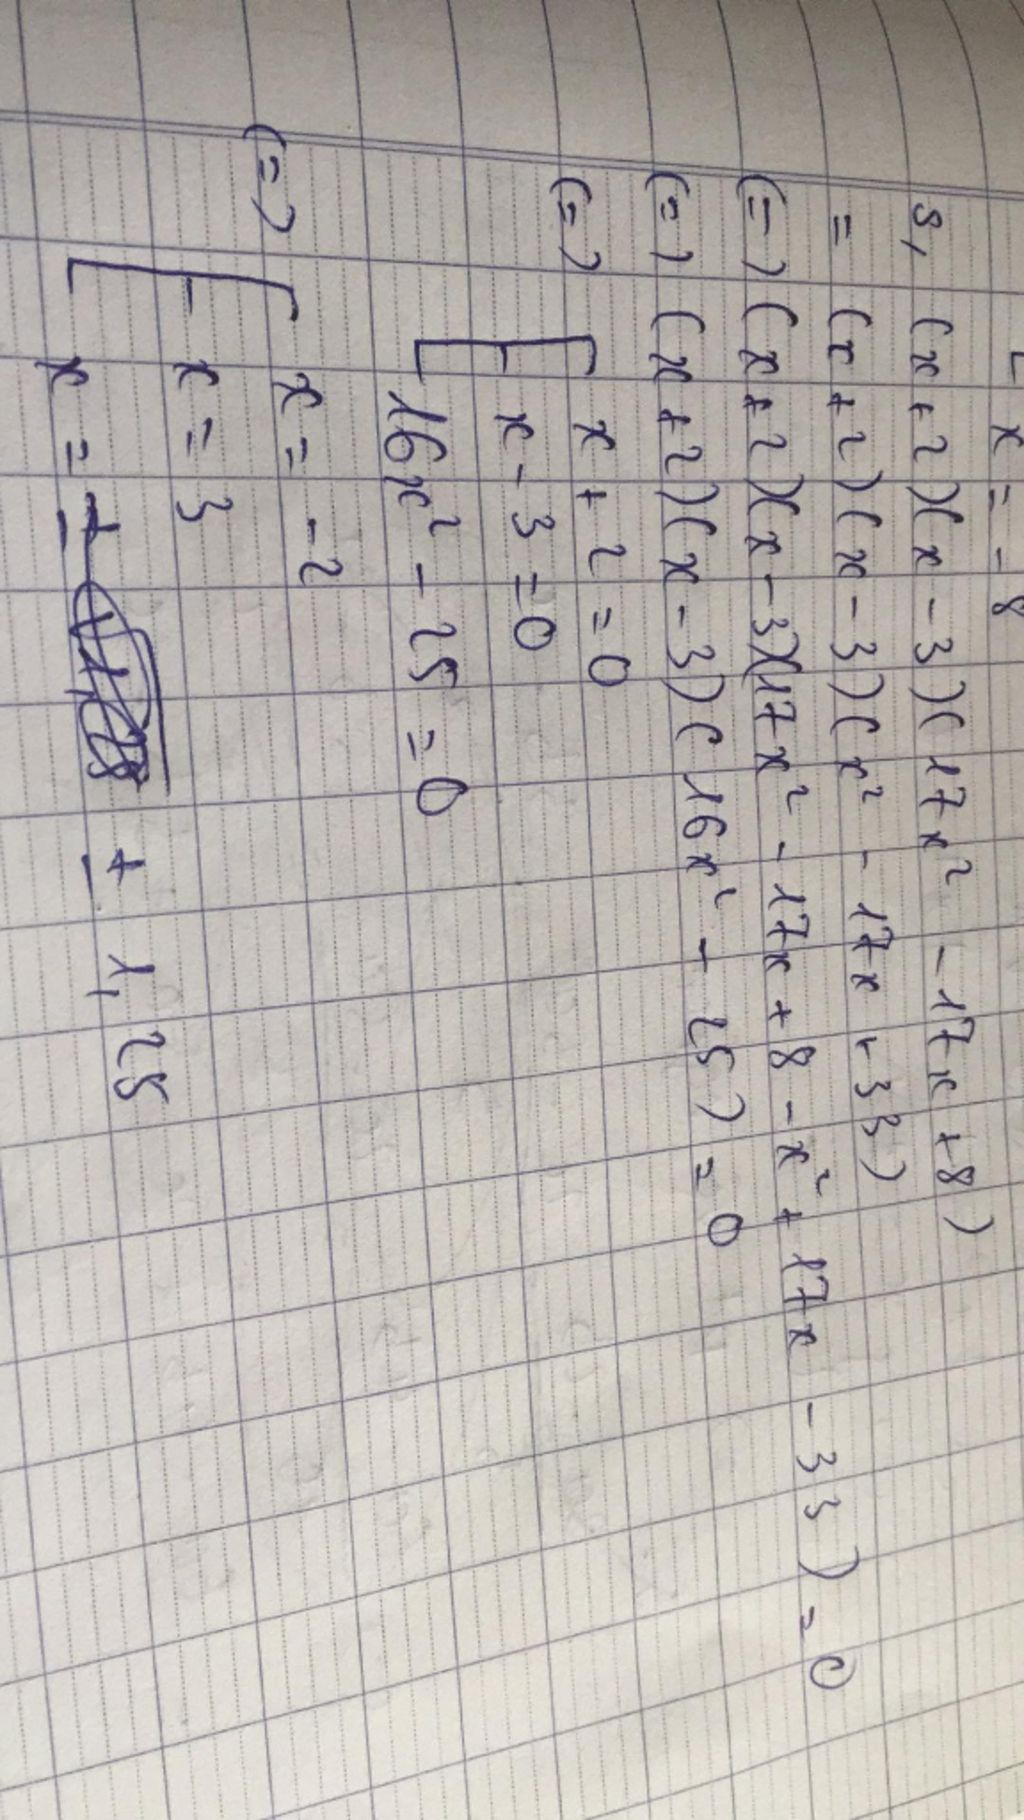 x = -8
3, (x+2)(x-3)(17x² - 17x +8)
= (x+2)(x-3)(x² - 17x +33)
(=) (x+2)(x-3)(17x² - 17x +8 -x² + 17x - 33) = 0
(=) (x+2)(x-3)(16x² - 25) = 0
(=) x + 2 = 0
x - 3 = 0
16x² - 25 = 0
(=) x = -2
x = 3
x = ± 1,25